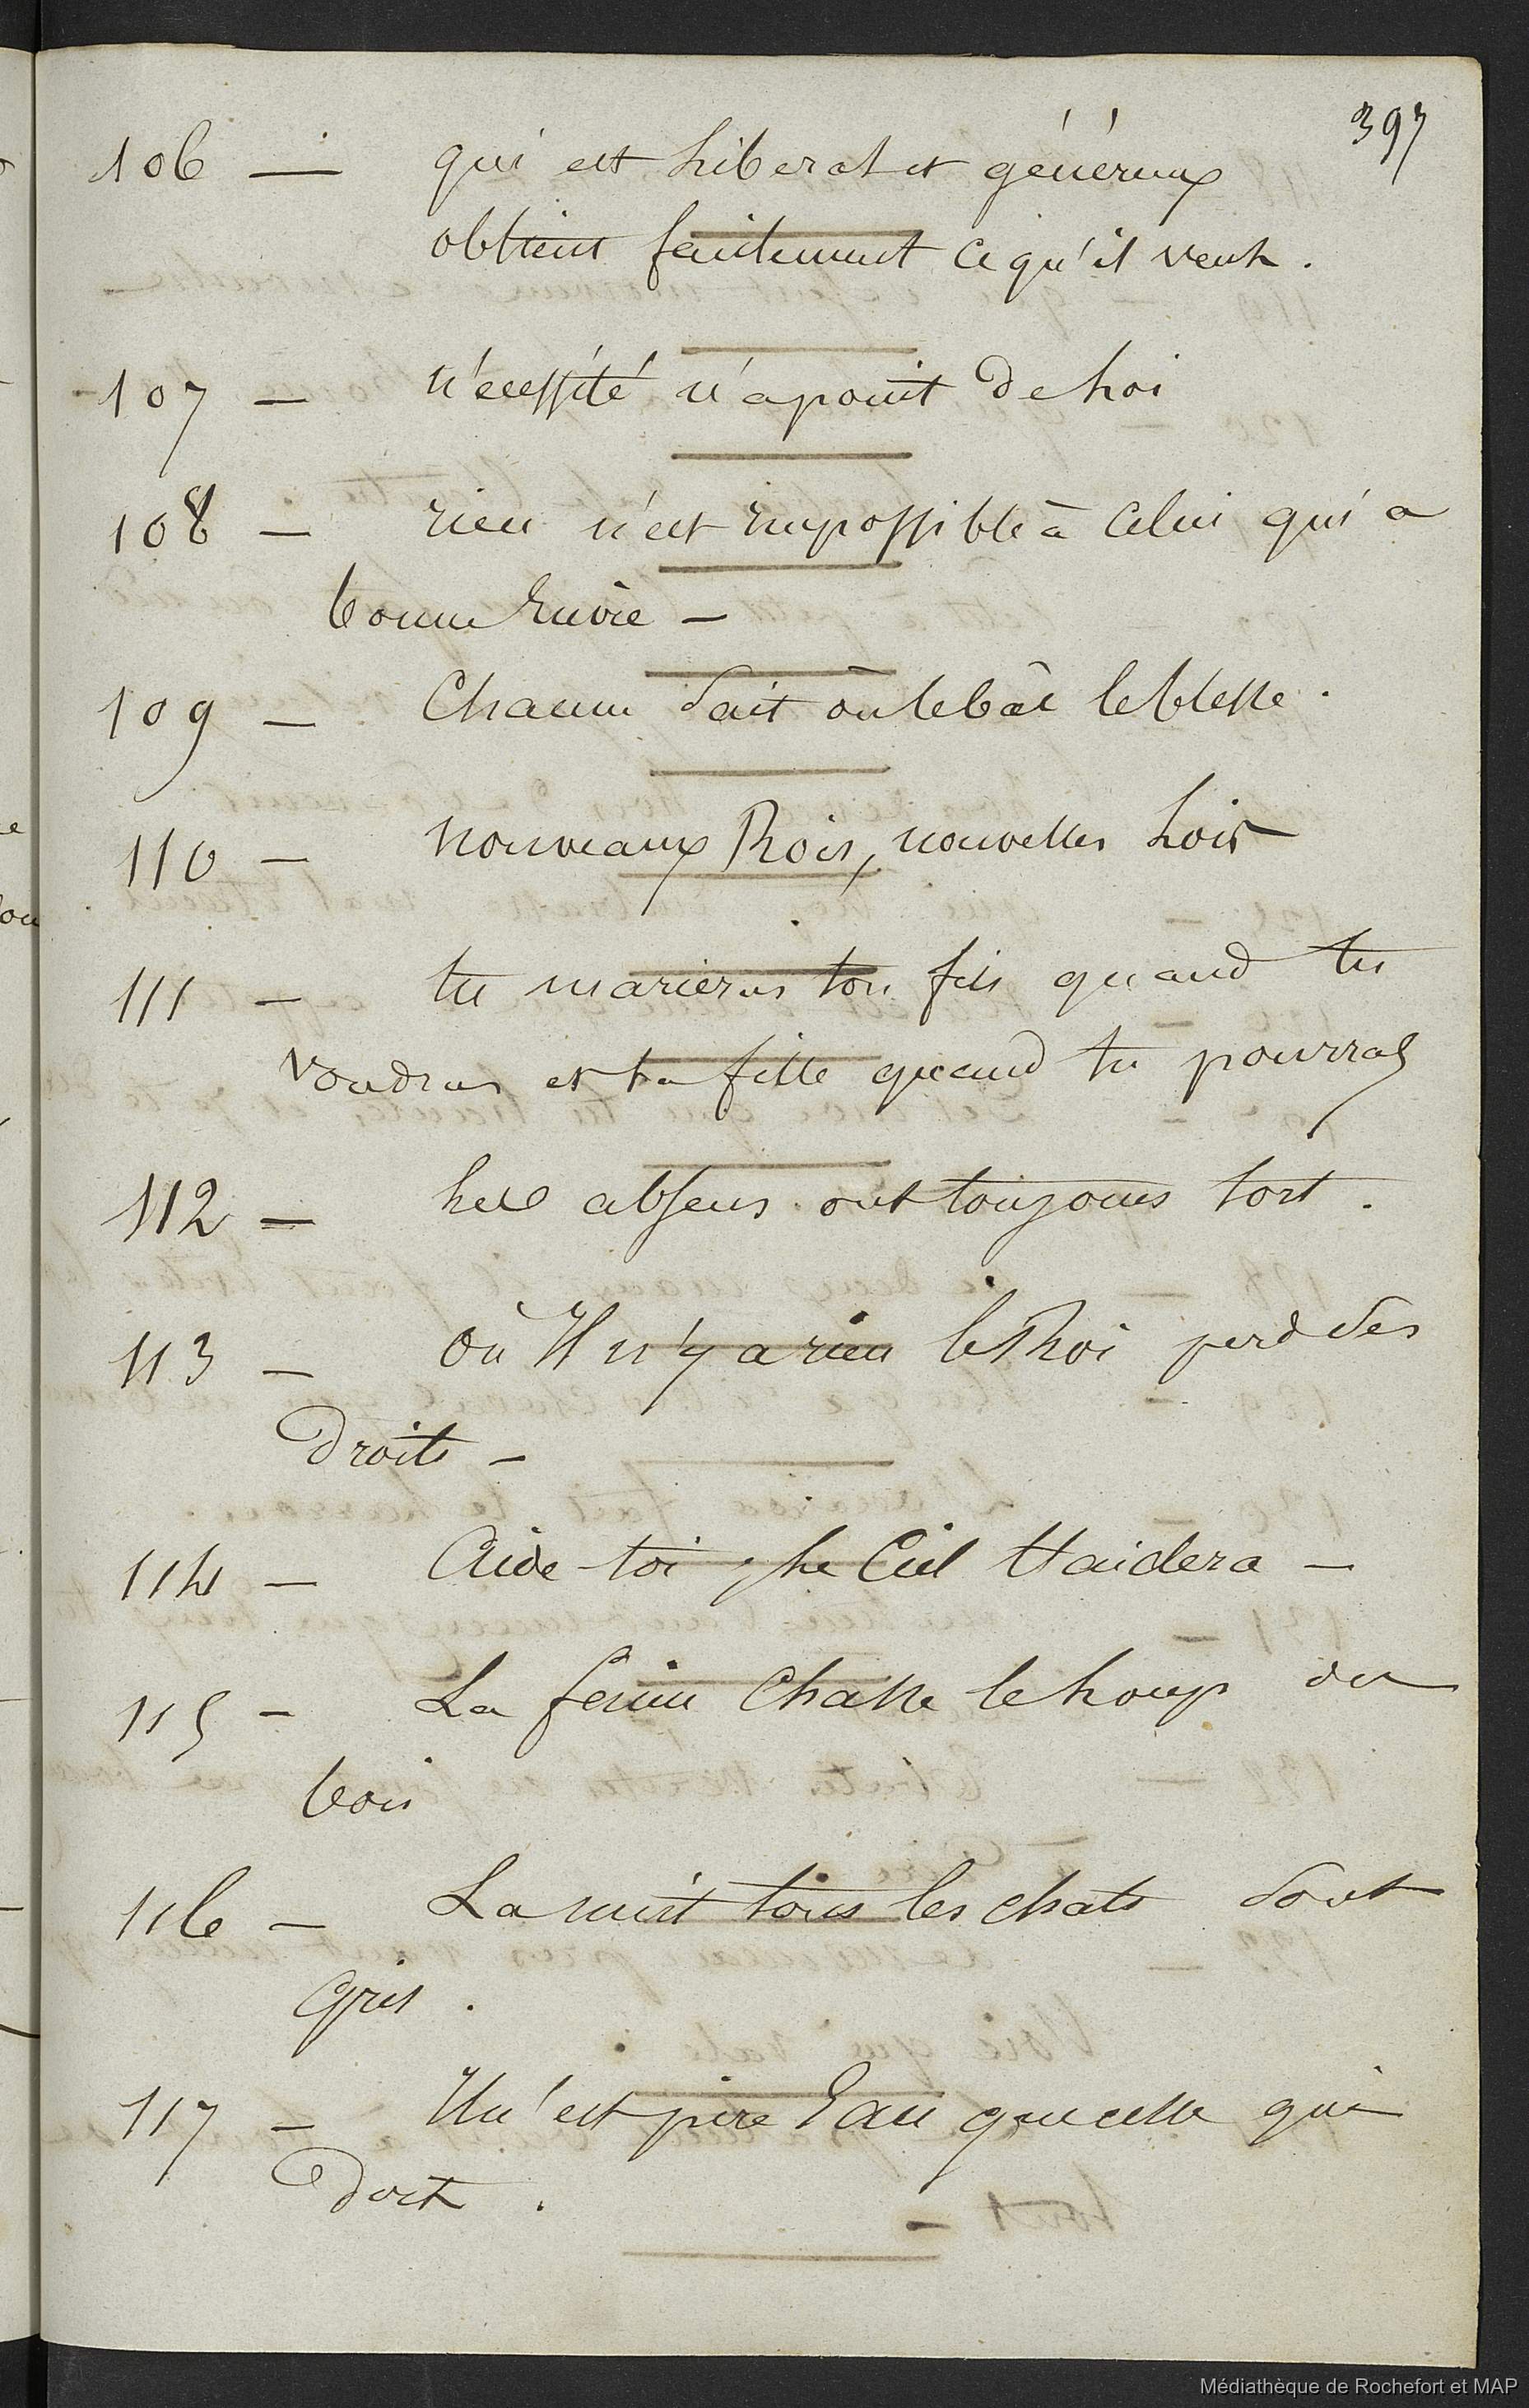 397
106 — qui est Liberal et généreux
obtient facilement ce qu'il veut.
107 — n'écessité n'a point de Loi
108 — rien n'est impossible à celui qui a
bonne Envie —
109 — Chacun sait où le bât le blesse.
110 — nouveaux Rois, nouvelles Lois
111 — tu marieras ton fils quand tu
voudras et ta fille quand tu pourras
112 — Les absens ont toujours tort.
113 — où Il n'y a rien le Roi perd ses
droits —
114 — Aide-toi, Le Ciel t'aidera —
115 — La faim Chasse le Loup du
bois
116 — La nuit tous les chats sont
gris.
117 — Il n'est pire Eau que celle qui
dort.
Médiathèque de Rochefort et MAP